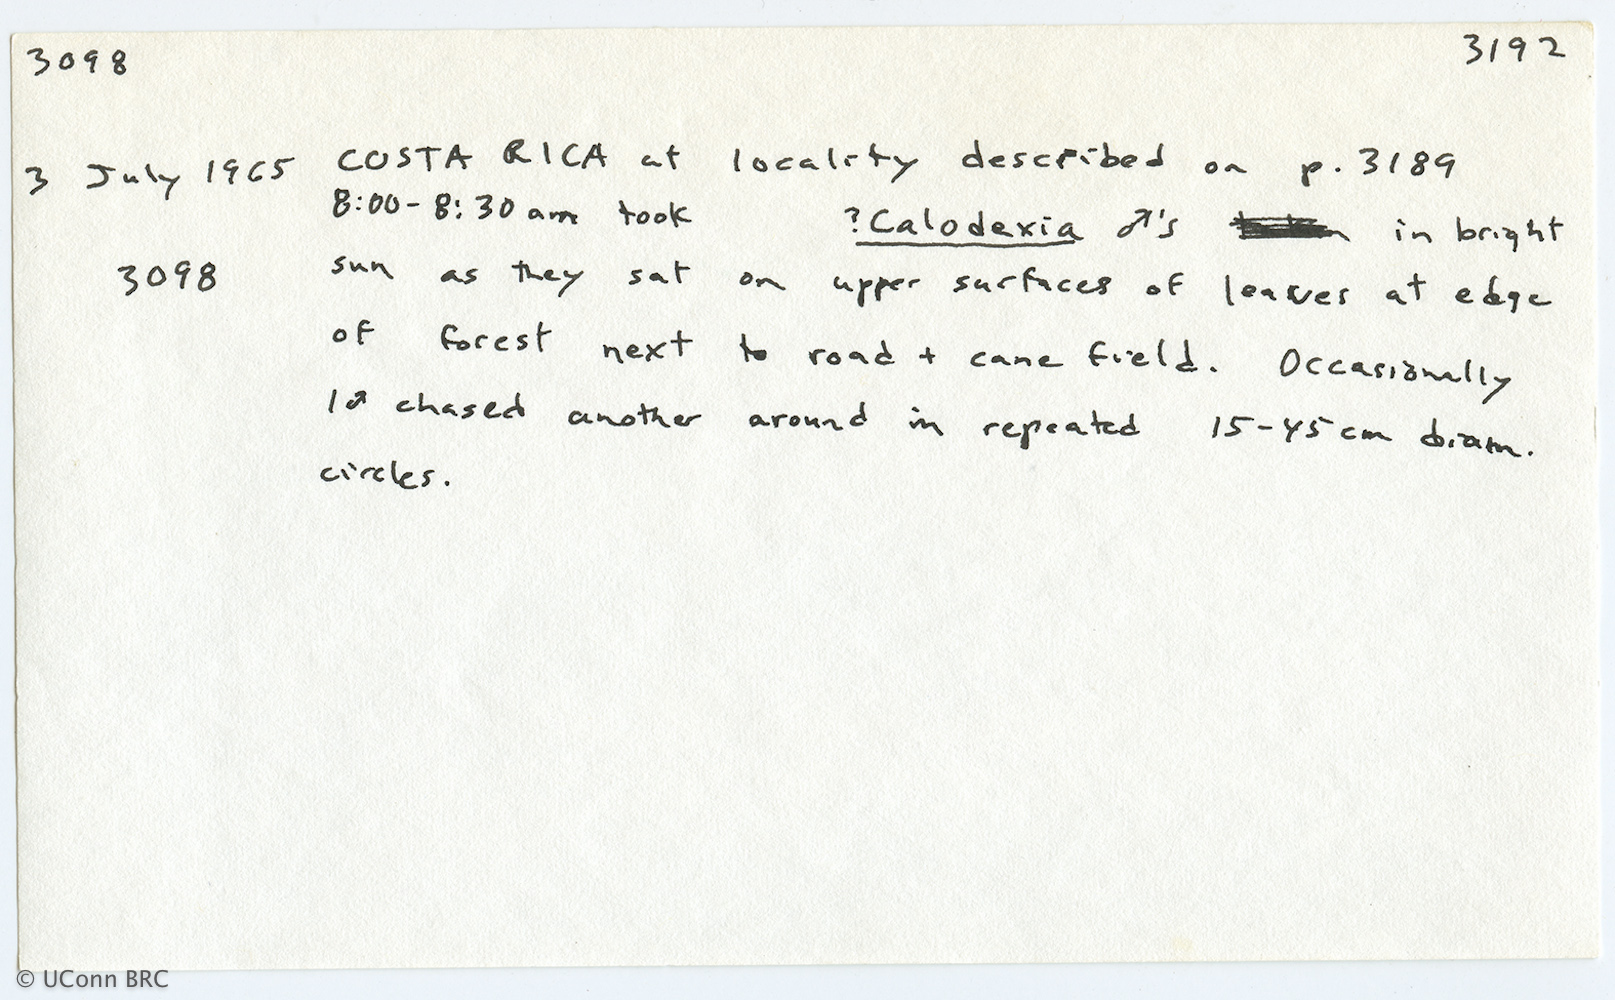 3098 3192
3 July 1965 COSTA RICA at locality described on p. 3189
8:00-8:30 am took ?Calodexia ♂'s in bright
3098 sun as they sat on upper surfaces of leaves at edge
of forest next to road + cane field. Occasionally
1♂ chased another around in repeated 15-45 cm diam.
circles.
© UConn BRC